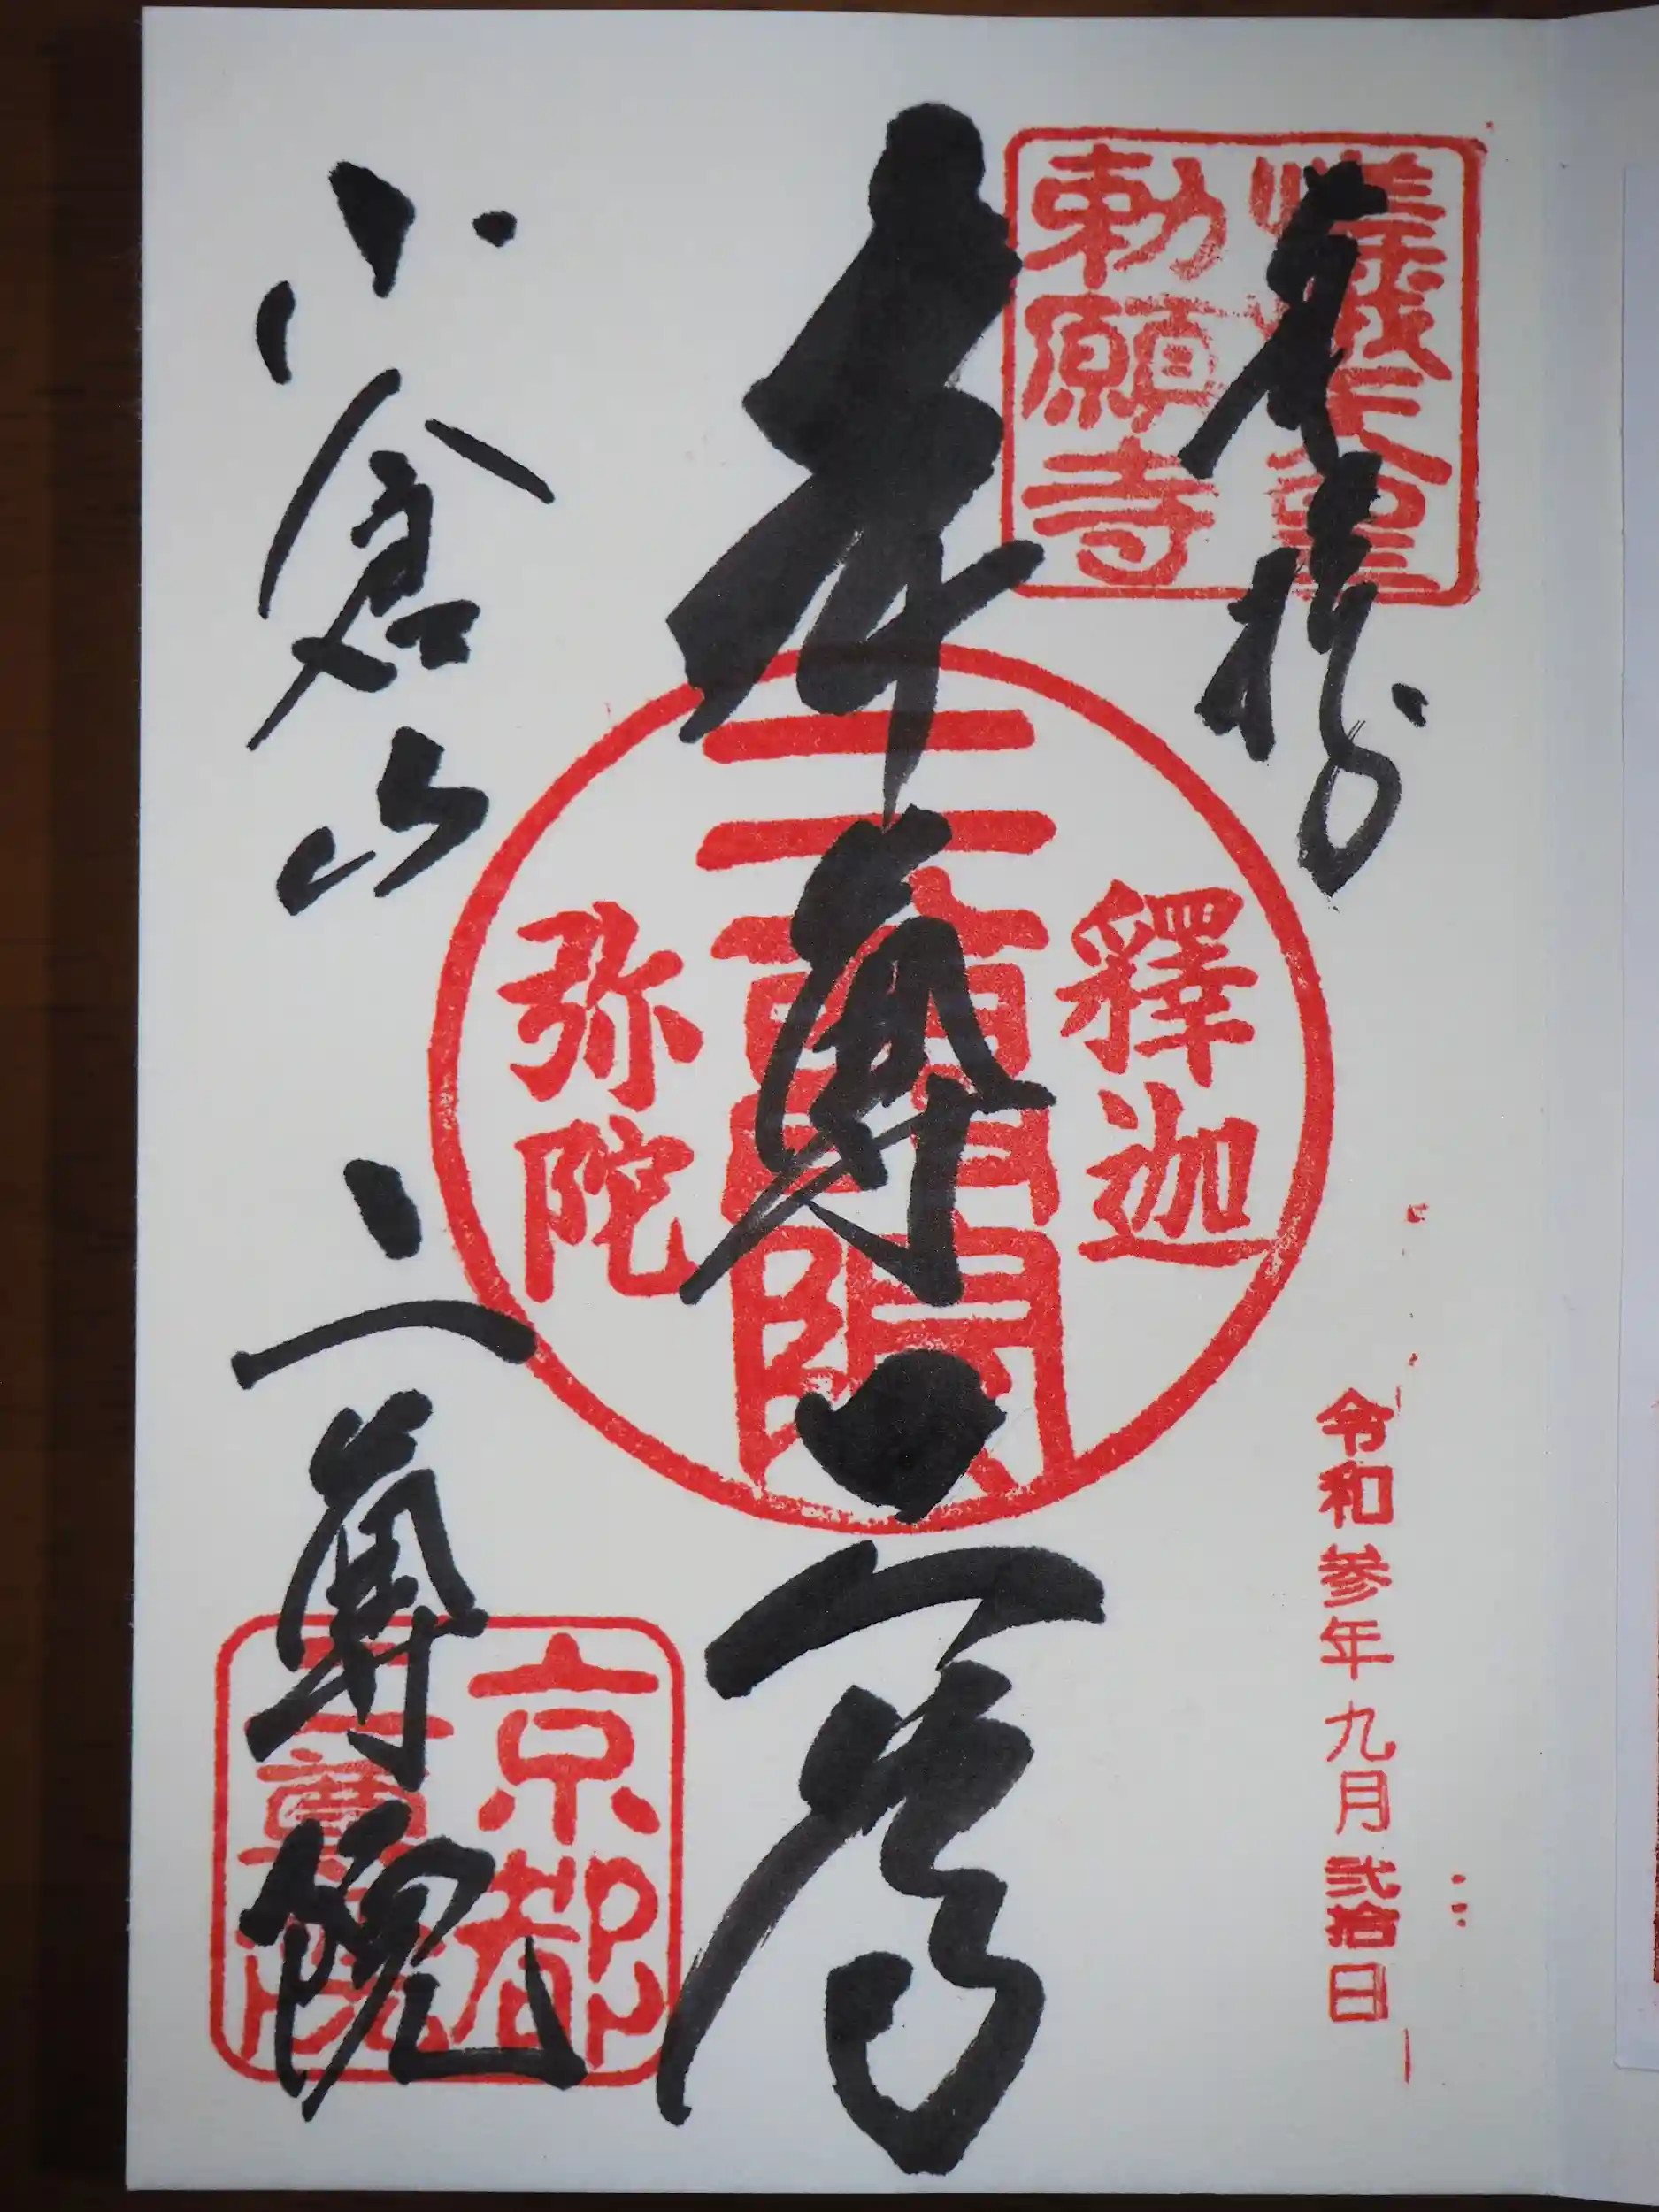 奉拝
嵯峨天皇
勅願寺
令和参年九月弐拾日
本尊二尊
釋迦
二尊院
弥陀
小倉山
二尊院
京都
二尊院